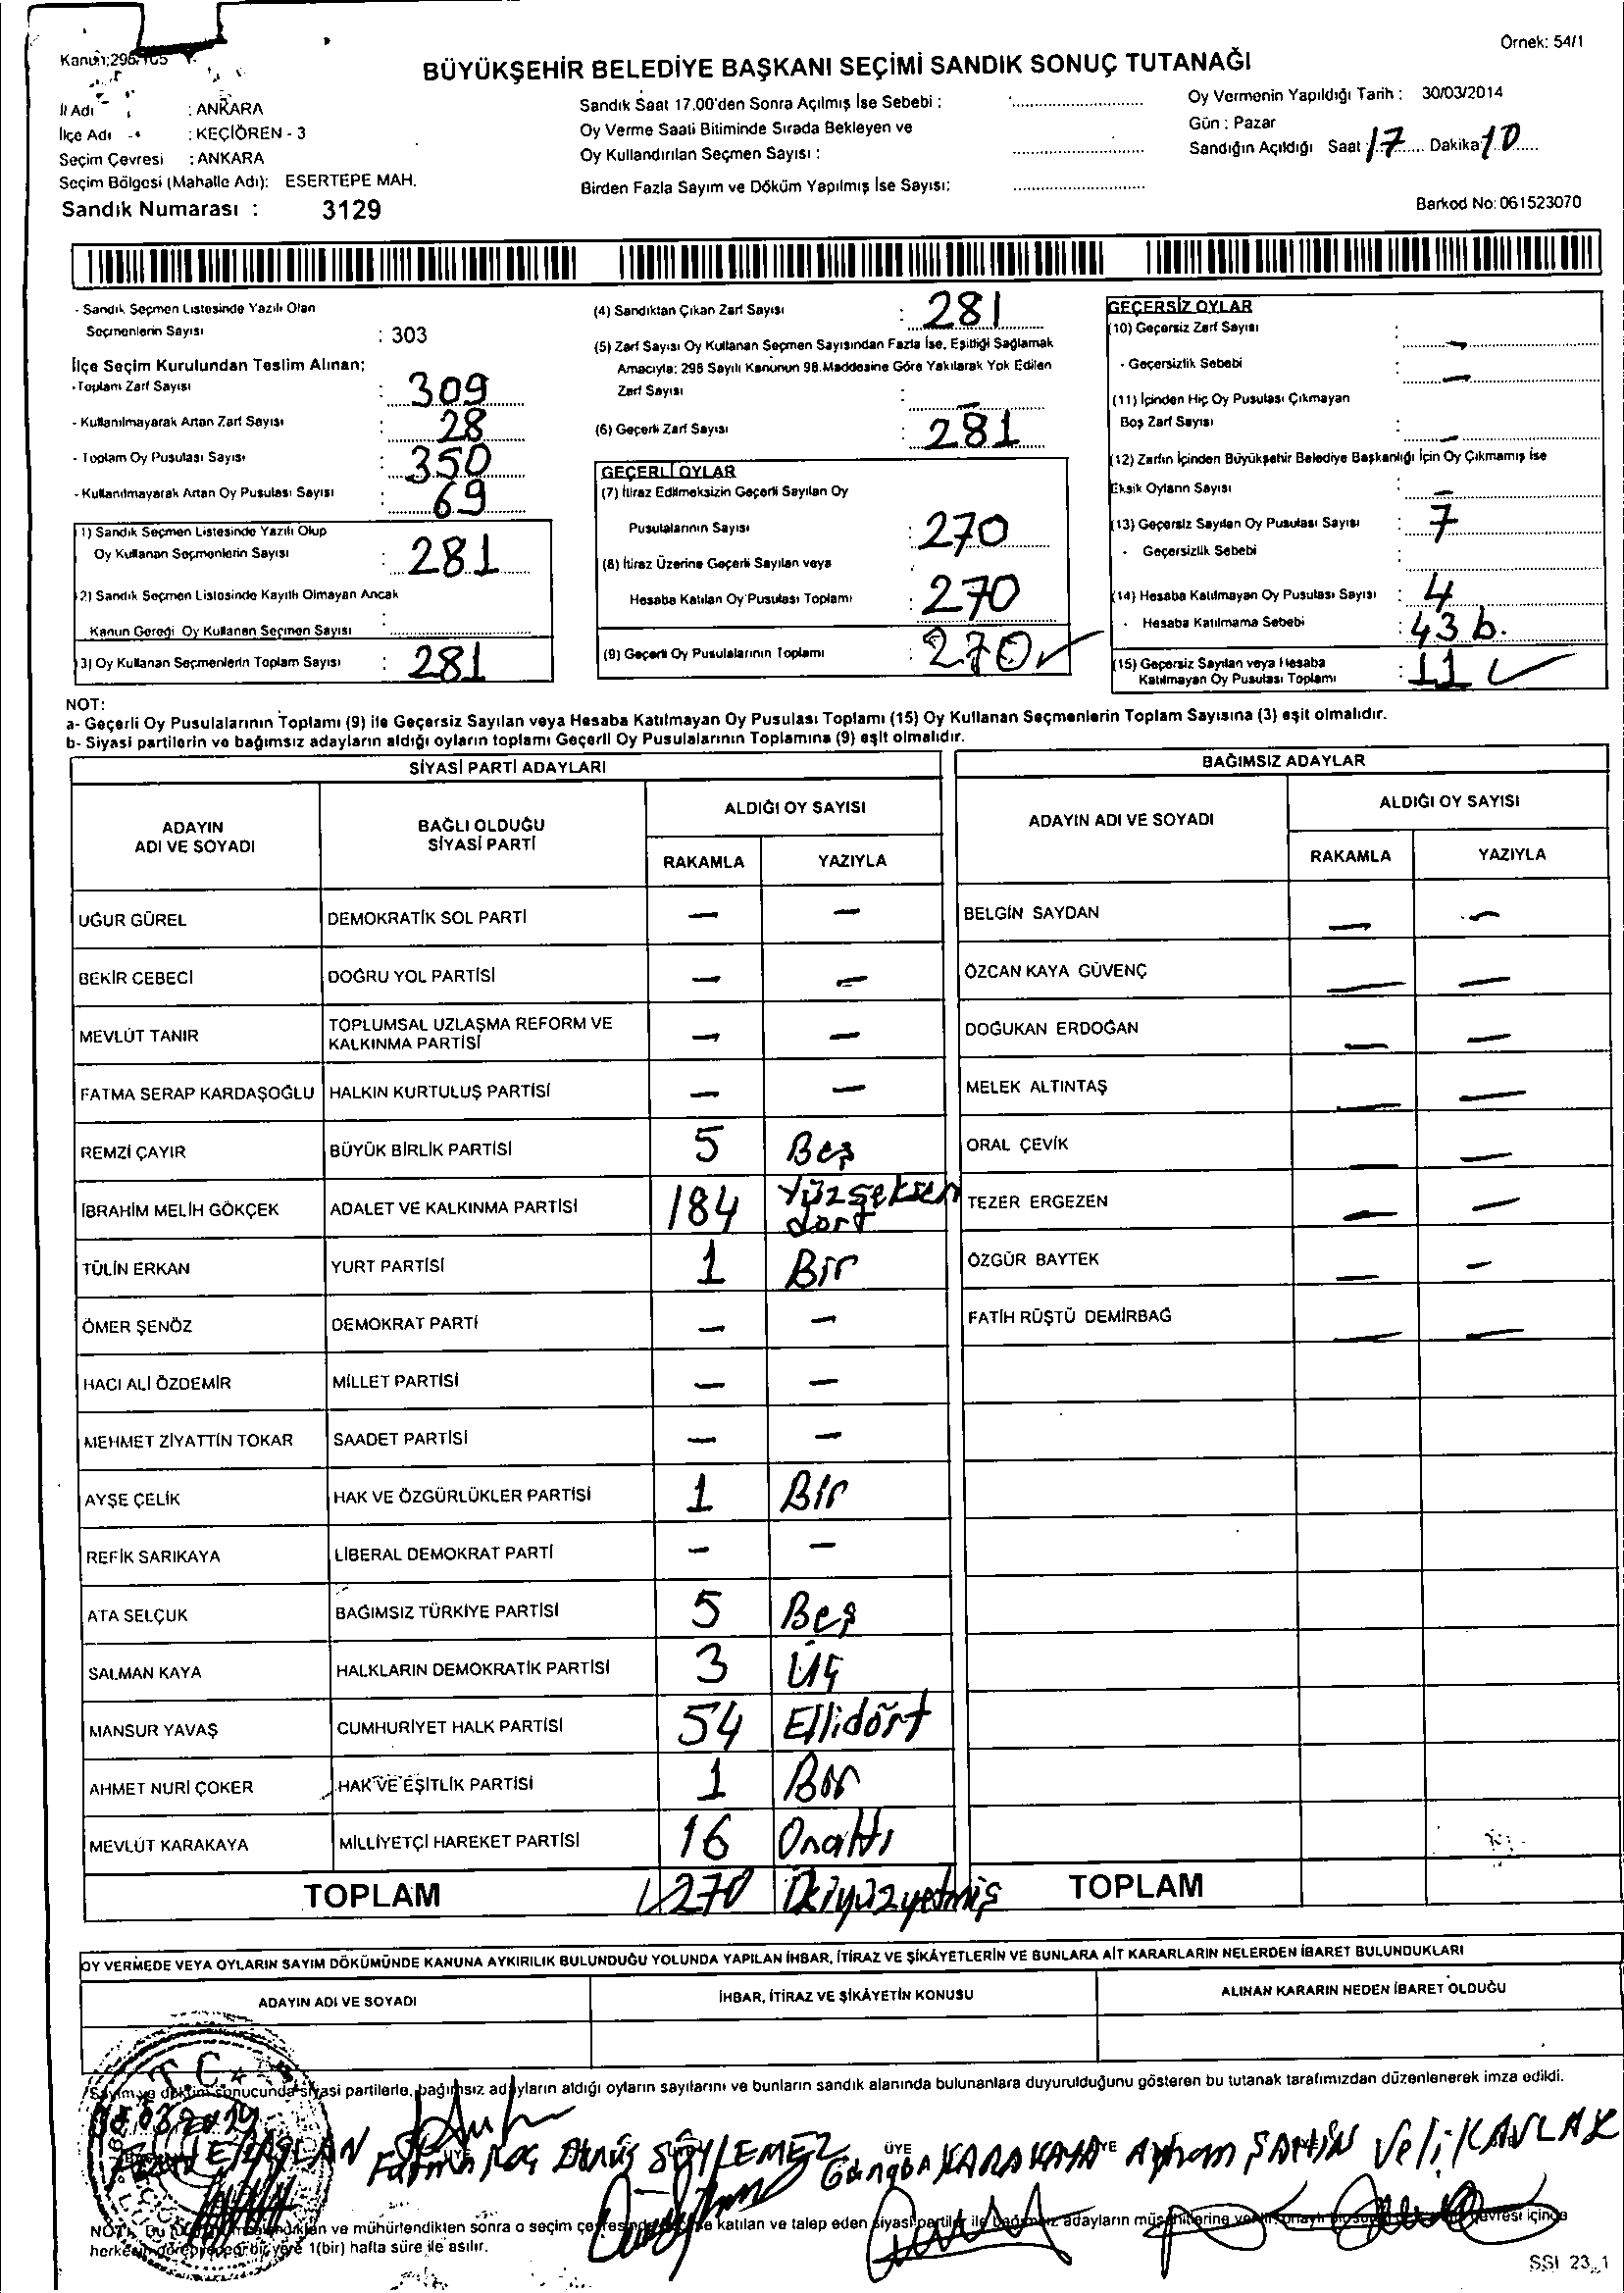 Örnek: 54/1
Kanun:298/105
BÜYÜKŞEHİR BELEDİYE BAŞKANI SEÇİMİ SANDIK SONUÇ TUTANAĞI
İl Adı : ANKARA
İlçe Adı : KEÇİÖREN - 3
Seçim Çevresi : ANKARA
Seçim Bölgesi (Mahalle Adı): ESERTEPE MAH.
Sandık Numarası : 3129
Sandık Saat 17.00'den Sonra Açılmış İse Sebebi :
Oy Verme Saati Bitiminde Sırada Bekleyen ve
Oy Kullandırılan Seçmen Sayısı :
Birden Fazla Sayım ve Döküm Yapılmış İse Sayısı:
Oy Vermenin Yapıldığı Tarih : 30/03/2014
Gün : Pazar
Sandığın Açıldığı Saat 17 Dakika 10
Barkod No: 061523070
- Sandık Seçmen Listesinde Yazılı Olan
Seçmenlerin Sayısı : 303
İlçe Seçim Kurulundan Teslim Alınan;
- Toplam Zarf Sayısı : 309
- Kullanılmayarak Artan Zarf Sayısı : 28
- Toplam Oy Pusulası Sayısı : 350
- Kullanılmayarak Artan Oy Pusulası Sayısı : 69
1) Sandık Seçmen Listesinde Yazılı Olup
Oy Kullanan Seçmenlerin Sayısı : 281
2) Sandık Seçmen Listesinde Kayıtlı Olmayan Ancak
Kanun Gereği Oy Kullanan Seçmen Sayısı :
3) Oy Kullanan Seçmenlerin Toplam Sayısı : 281
(4) Sandıktan Çıkan Zarf Sayısı : 281
(5) Zarf Sayısı Oy Kullanan Seçmen Sayısından Fazla İse, Eşitliği Sağlamak
Amacıyla: 298 Sayılı Kanunun 98.Maddesine Göre Yakılarak Yok Edilen
Zarf Sayısı : -
(6) Geçerli Zarf Sayısı : 281
GEÇERLİ OYLAR
(7) İtiraz Edilmeksizin Geçerli Sayılan Oy
Pusulalarının Sayısı : 270
(8) İtiraz Üzerine Geçerli Sayılan veya
Hesaba Katılan Oy Pusulası Toplamı : 270
(9) Geçerli Oy Pusulalarının Toplamı : 270 ✓
GEÇERSİZ OYLAR
(10) Geçersiz Zarf Sayısı : -
- Geçersizlik Sebebi : -
(11) İçinden Hiç Oy Pusulası Çıkmayan
Boş Zarf Sayısı : -
(12) Zarfın İçinden Büyükşehir Belediye Başkanlığı İçin Oy Çıkmamış İse
Eksik Oyların Sayısı : -
(13) Geçersiz Sayılan Oy Pusulası Sayısı : 7
- Geçersizlik Sebebi :
(14) Hesaba Katılmayan Oy Pusulası Sayısı : 4
- Hesaba Katılmama Sebebi : 43 b.
(15) Geçersiz Sayılan veya Hesaba
Katılmayan Oy Pusulası Toplamı : 11 ✓
NOT:
a- Geçerli Oy Pusulalarının Toplamı (9) ile Geçersiz Sayılan veya Hesaba Katılmayan Oy Pusulası Toplamı (15) Oy Kullanan Seçmenlerin Toplam Sayısına (3) eşit olmalıdır.
b- Siyasi partilerin ve bağımsız adayların aldığı oyların toplamı Geçerli Oy Pusulalarının Toplamına (9) eşit olmalıdır.
SİYASİ PARTİ ADAYLARI
ADAYIN ADI VE SOYADI
BAĞLI OLDUĞU SİYASİ PARTİ
ALDIĞI OY SAYISI
RAKAMLA YAZIYLA
UĞUR GÜREL DEMOKRATİK SOL PARTİ - -
BEKİR CEBECİ DOĞRU YOL PARTİSİ - -
MEVLÜT TANIR TOPLUMSAL UZLAŞMA REFORM VE KALKINMA PARTİSİ - -
FATMA SERAP KARDAŞOĞLU HALKIN KURTULUŞ PARTİSİ - -
REMZİ ÇAYIR BÜYÜK BİRLİK PARTİSİ 5 Beş
İBRAHİM MELİH GÖKÇEK ADALET VE KALKINMA PARTİSİ 184 Yüzseksen dört
TÜLİN ERKAN YURT PARTİSİ 1 Bir
ÖMER ŞENÖZ DEMOKRAT PARTİ - -
HACI ALİ ÖZDEMİR MİLLET PARTİSİ - -
MEHMET ZİYATTİN TOKAR SAADET PARTİSİ - -
AYŞE ÇELİK HAK VE ÖZGÜRLÜKLER PARTİSİ 1 Bir
REFİK SARIKAYA LİBERAL DEMOKRAT PARTİ - -
ATA SELÇUK BAĞIMSIZ TÜRKİYE PARTİSİ 5 Beş
SALMAN KAYA HALKLARIN DEMOKRATİK PARTİSİ 3 Üç
MANSUR YAVAŞ CUMHURİYET HALK PARTİSİ 54 Ellidört
AHMET NURİ ÇOKER HAK VE EŞİTLİK PARTİSİ 1 Bir
MEVLÜT KARAKAYA MİLLİYETÇİ HAREKET PARTİSİ 16 Onaltı
TOPLAM 270 İkiyüzyetmiş
BAĞIMSIZ ADAYLAR
ADAYIN ADI VE SOYADI
ALDIĞI OY SAYISI
RAKAMLA YAZIYLA
BELGİN SAYDAN - -
ÖZCAN KAYA GÜVENÇ - -
DOĞUKAN ERDOĞAN - -
MELEK ALTINTAŞ - -
ORAL ÇEVİK - -
TEZER ERGEZEN - -
ÖZGÜR BAYTEK - -
FATİH RÜŞTÜ DEMİRBAĞ - -
TOPLAM
OY VERMEDE VEYA OYLARIN SAYIM DÖKÜMÜNDE KANUNA AYKIRILIK BULUNDUĞU YOLUNDA YAPILAN İHBAR, İTİRAZ VE ŞİKÂYETLERİN VE BUNLARA AİT KARARLARIN NELERDEN İBARET BULUNDUKLARI
ADAYIN ADI VE SOYADI
İHBAR, İTİRAZ VE ŞİKÂYETİN KONUSU
ALINAN KARARIN NEDEN İBARET OLDUĞU
T.C.
Sayım ve döküm sonucunda siyasi partilerle, bağımsız adayların aldığı oyların sayılarını ve bunların sandık alanında bulunanlara duyurulduğunu gösteren bu tutanak tarafımızdan düzenlenerek imza edildi.
Fatma Koç SÖYLEMEZ ÜYE KARAKAYA Ayhan ŞAHİN Veli KAVLAK
katılan ve talep eden siyasi partiler ile bağımsız adayların
1(bir) hafta süre ile asılır.
SSI 23_1